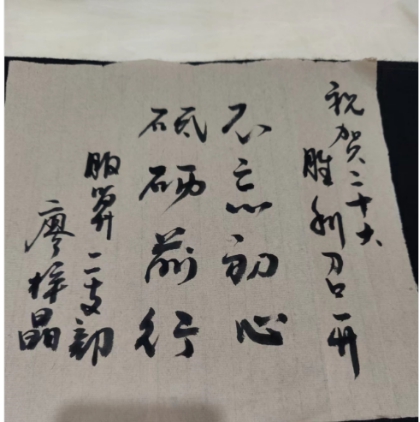 祝贺二十大
胜利召开
不忘初心
砥砺前行
服算二支部
廖梓晶